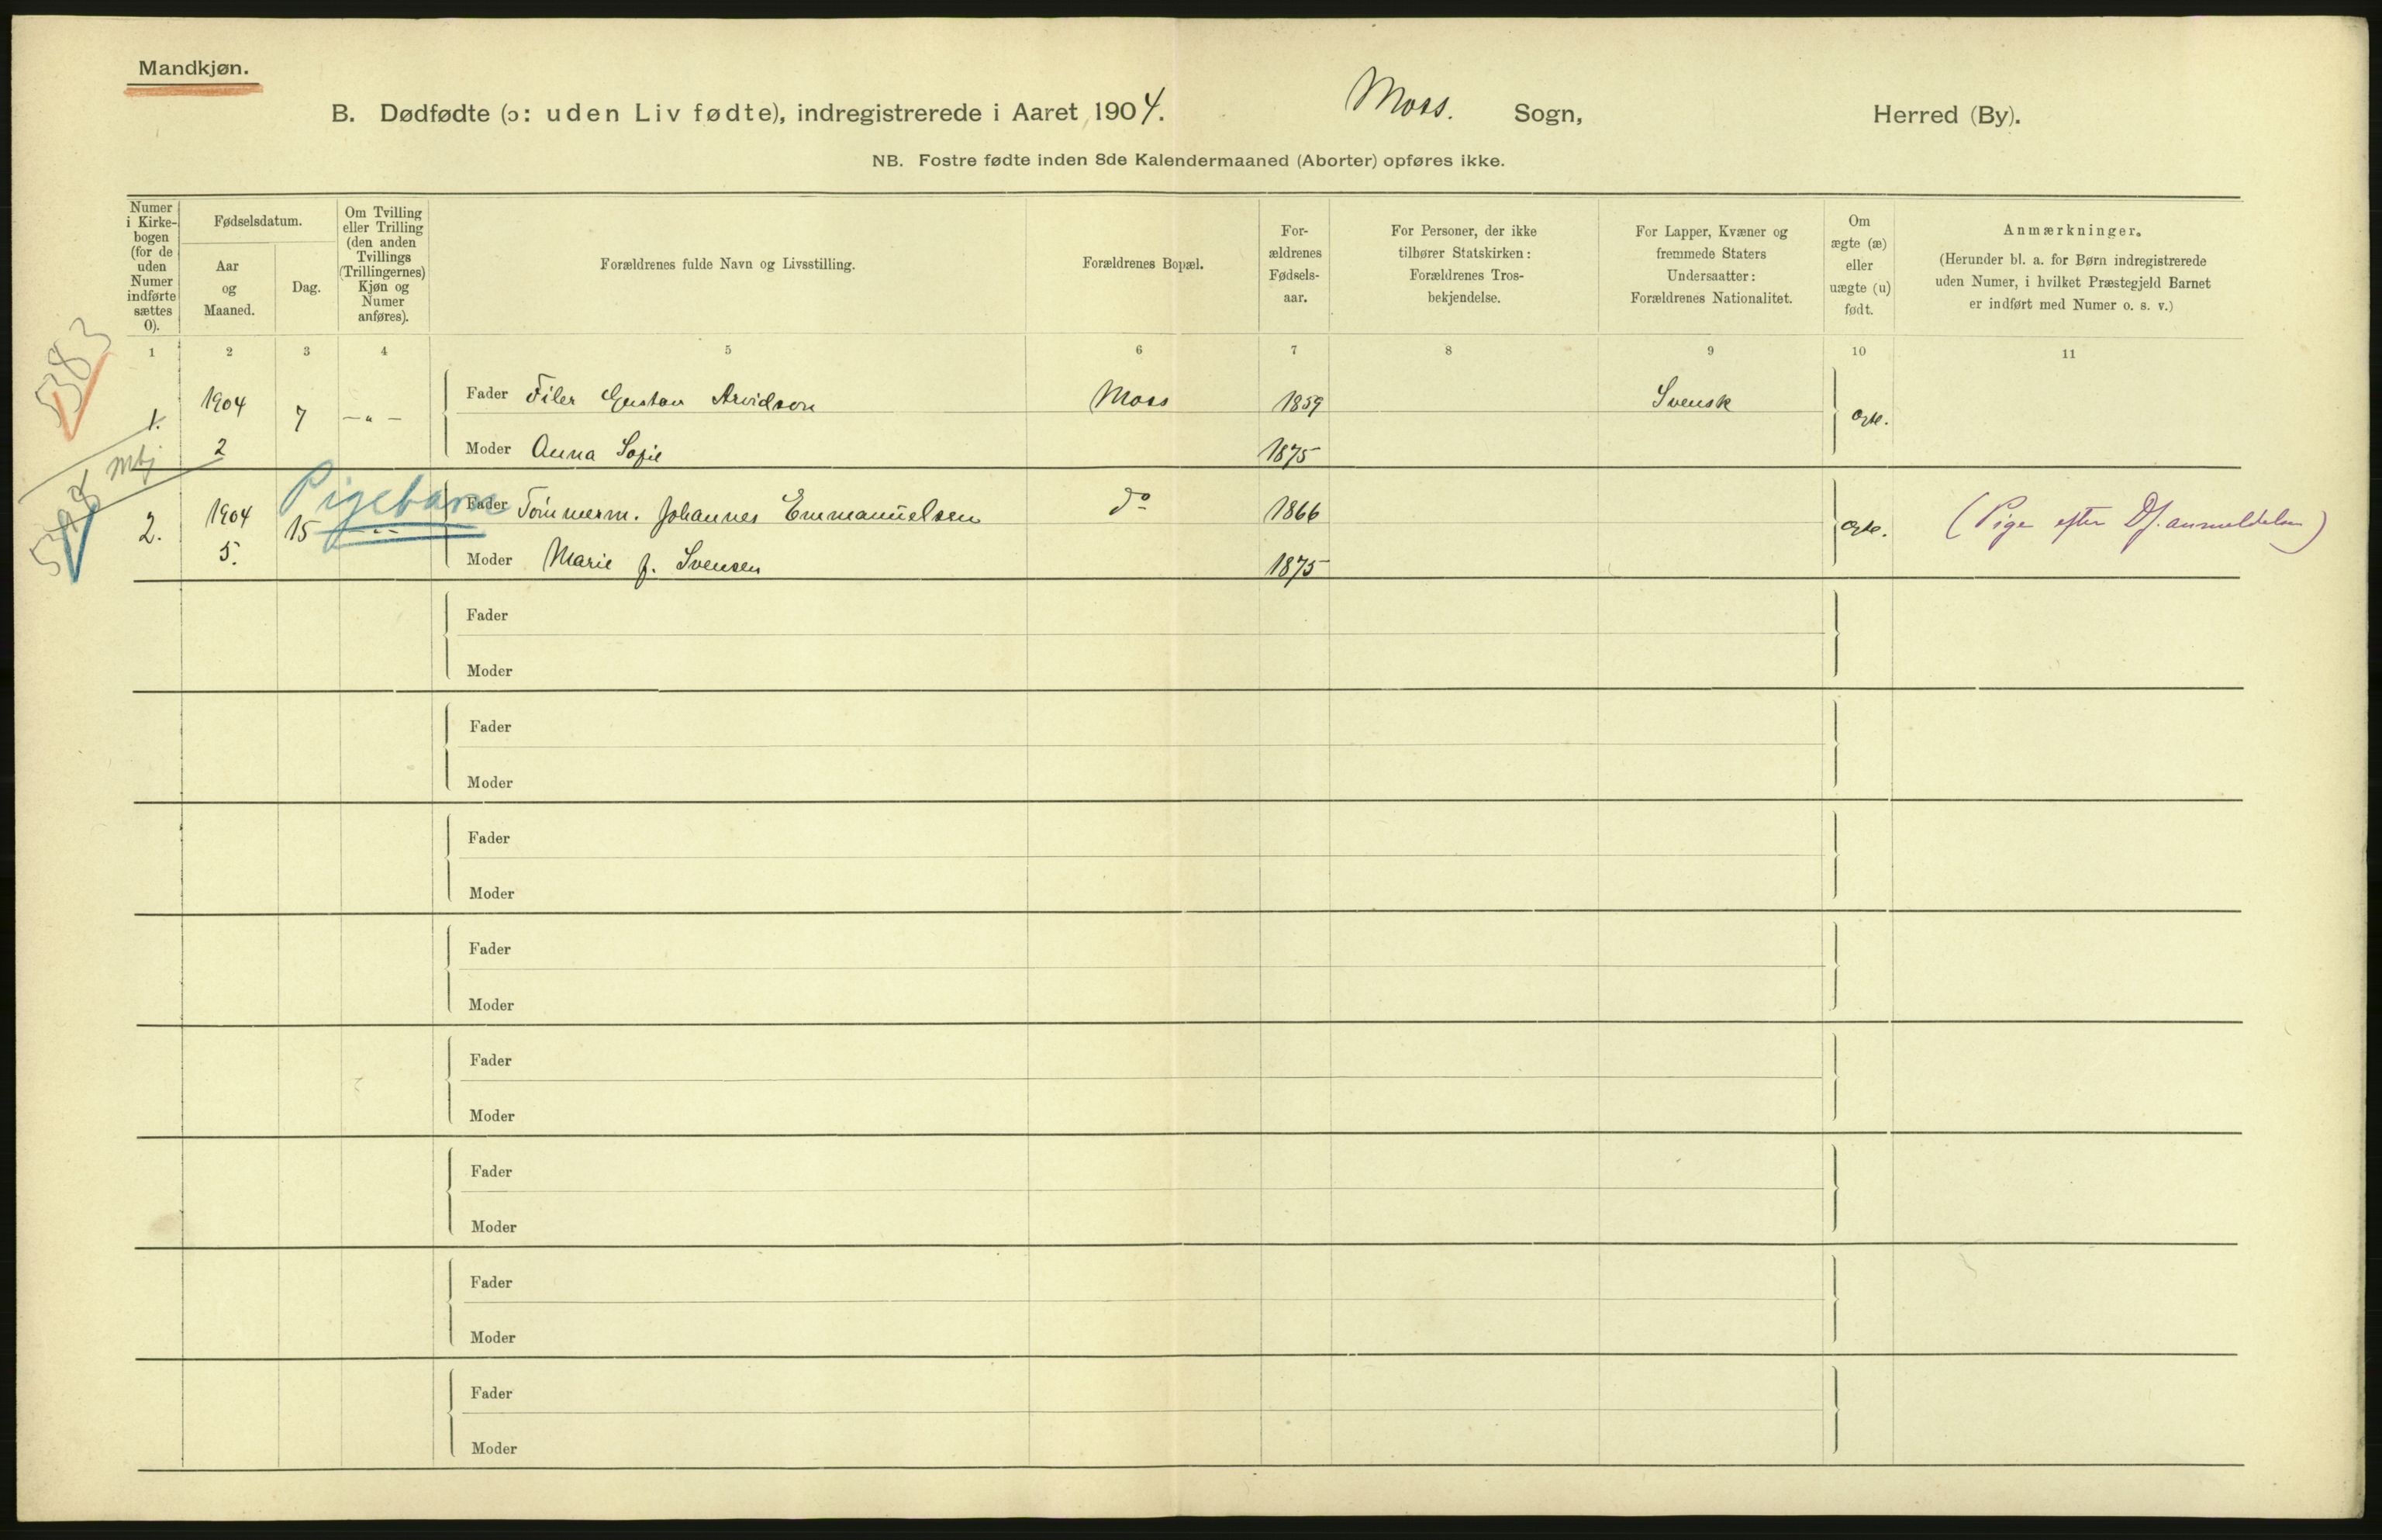 Mandkjøn.
B. Dødfødte (ɔ: uden Liv fødte), indregistrerede i Aaret 1904. Moss. Sogn, Herred (By).
NB. Fostre fødte inden 8de Kalendermaaned (Aborter) opføres ikke.
Numer
i Kirke-
bogen
(for de
uden
Numer
indførte
sættes
0).
Fødselsdatum.
Aar
og
Maaned.
Dag.
Om Tvilling
eller Trilling
(den anden
Tvillings
(Trillingernes)
Kjøn og
Numer
anføres).
Forældrenes fulde Navn og Livsstilling.
Forældrenes Bopæl.
For-
ældrenes
Fødsels-
aar.
For Personer, der ikke
tilhører Statskirken:
Forældrenes Tros-
bekjendelse.
For Lapper, Kvæner og
fremmede Staters
Undersaatter:
Forældrenes Nationalitet.
Om
ægte (æ)
eller
uægte (u)
født.
Anmærkninger.
(Herunder bl. a. for Børn indregistrerede
uden Numer, i hvilket Præstegjeld Barnet
er indført med Numer o. s. v.)
1 2 3 4 5 6 7 8 9 10 11
5383
1. 1904 7 — „ — Fader Filer Gustav Arvidson Moss 1859 Svensk Ægte.
2 Moder Anna Sofie 1875
Pigebarn
2. 1904 15 Fader Tömmerm. Johannes Emmanuelsen do 1866 Ægte. (Pige efter Df. anmeldelsen)
5. Moder Marie J. Svensen 1875
Fader
Moder
Fader
Moder
Fader
Moder
Fader
Moder
Fader
Moder
Fader
Moder
Fader
Moder
Fader
Moder